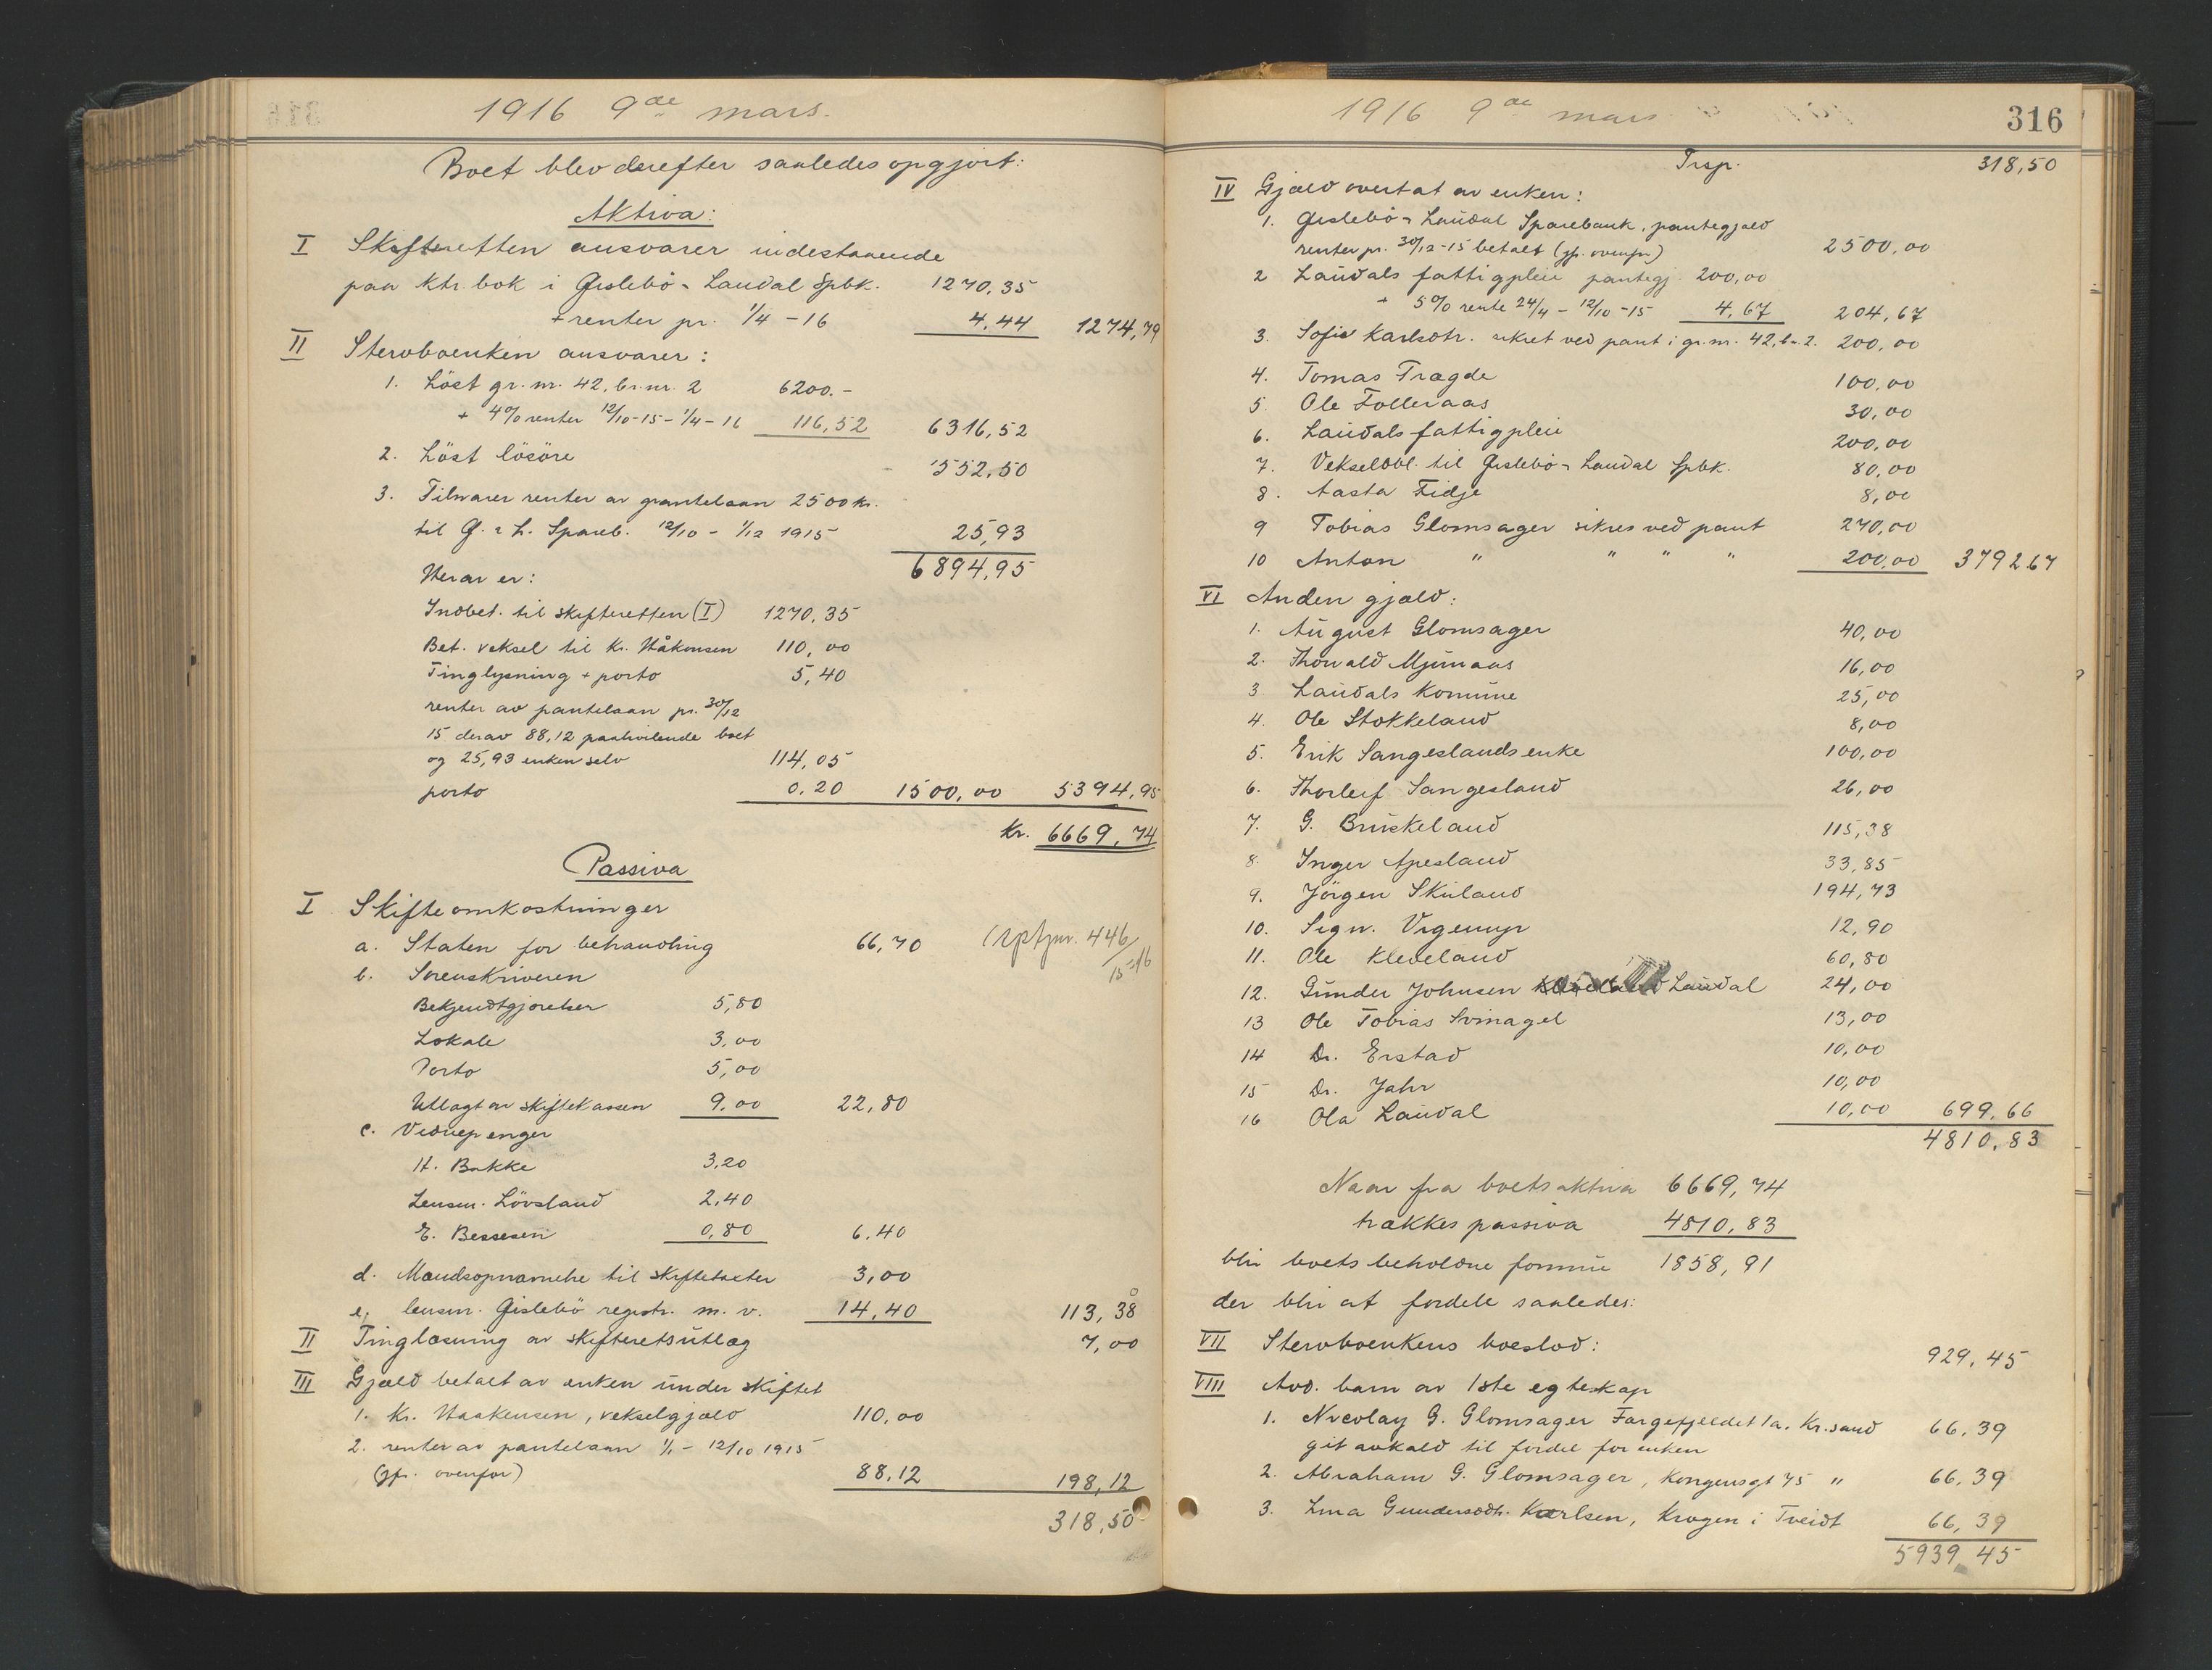 1916 9de mars.
Boet blev derefter saaledes opgjort:
Aktiva:
I Skifteretten ansvarer indestaaende
paa ktr. bok i Gislebö & Laudal Spbk. 1270,35
+ renter pr. 1/4 - 16 4,44 1274,79
II Stervboenken ansvarer:
1. Löst gr. nr. 42, br. nr. 2 6200.-
+ 4% renter 12/10-15 - 1/4-16 116,52 6316,52
2. Löst lösöre 552,50
3. Tilsvarer renter av pantelaan 2500 kr.
til G. & L. Spareb. 12/10 - 1/12 1915 25,93
6894,95
Herav er:
Indbet. til skifteretten (I) 1270,35
Bet. veksel til Kr. Håkonsen 110,00
Tinglysning + porto 5,40
renter av pantelaan pr. 30/12
15 derav 88,12 paahvilende boet
og 25,93 enken selv 114,05
porto 0,20 1500,00 5394,95
Kr. 6669,74
Passiva
I Skifteomkostninger
a. Staten for behandling 66,70 446/15-16
b. Sorenskriveren
Bekjendtgjörelser 5,80
Lokale 3,00
Porto 5,00
Utlagt av skiftekassen 9,00 22,80
c. Vidnepenger
H. Bakke 3,20
Lensm. Lövsland 2,40
E. Bessesen 0,80 6,40
d. Mandsopnævnelse til skiftetakster 3,00
e, lensm. Gislebö registr. m. v. 14,40 113,38
II Tinglæsning av skifteretsutlæg 7,00
III Gjæld betalt av enken under skiftet
1. Kr. Haakensen, vekselgjæld 110,00
2. renter av pantelaan 1/1 - 12/10 1915
(jfr. ovenfor) 88,12 198,12
318,50
1916 9de mars
316
Trsp. 318,50
IV Gjæld overtat av enken:
1. Gislebö & Laudal Sparebank, pantegjæld
renter pr. 30/12-15 betalt (jfr. ovenfor) 2500,00
2 Laudals fattigpleie pantegj. 200,00
+ 5% rente 24/4 - 12/10-15 4,67 204,67
3. Sofie Karlsdtr. sikret ved pant i gr. nr. 42, br. 2. 200,00
4. Tomas Trægde 100,00
5. Ole Folleraas 30,00
6. Laudals fattigpleie 200,00
7. Vekselobl. til Gislebö & Laudal Spbk. 80,00
8. Aasta Fidje 8,00
9 Tobias Glomsager sikres ved pant 270,00
10 Anton " " " " 200,00 3792,67
VI Anden gjæld:
1. August Glomsager 40,00
2. Thorvald Mjunaas 16,00
3 Laudals Komune 25,00
4. Ole Stokkeland 8,00
5. Erik Sangeslands enke 100,00
6. Thorleif Sangesland 26,00
7. G. Bruskeland 115,38
8. Inger Apesland 33,85
9. Jörgen Skuland 194,73
10. Sign. Vigemyr 12,90
11. Ole Kleveland 60,80
12. Gunder Johnsen Laudal 24,00
13 Ole Tobias Svinagel 13,00
14 Dr. Erstad 10,00
15 Dr. Jahr 10,00
16 Ola Laudal 10,00 699,66
4810,83
Naar fra boets aktiva 6669,74
trækkes passiva 4810,83
blir boets beholdne formue 1858,91
der blir at fordele saaledes:
VII Stervboenkens boeslod: 929,45
VIII Avd. barn av 1ste egteskap
1. Nicolay G. Glomsager Fargefjeldet 1a. Kr.sand 66,39
git avkald til fordel for enken
2. Abraham G. Glomsager, Kongensgt 75 " 66,39
3. Lina Gundersdtr. Karlsen, Krogen i Tveidt 66,39
5939,45